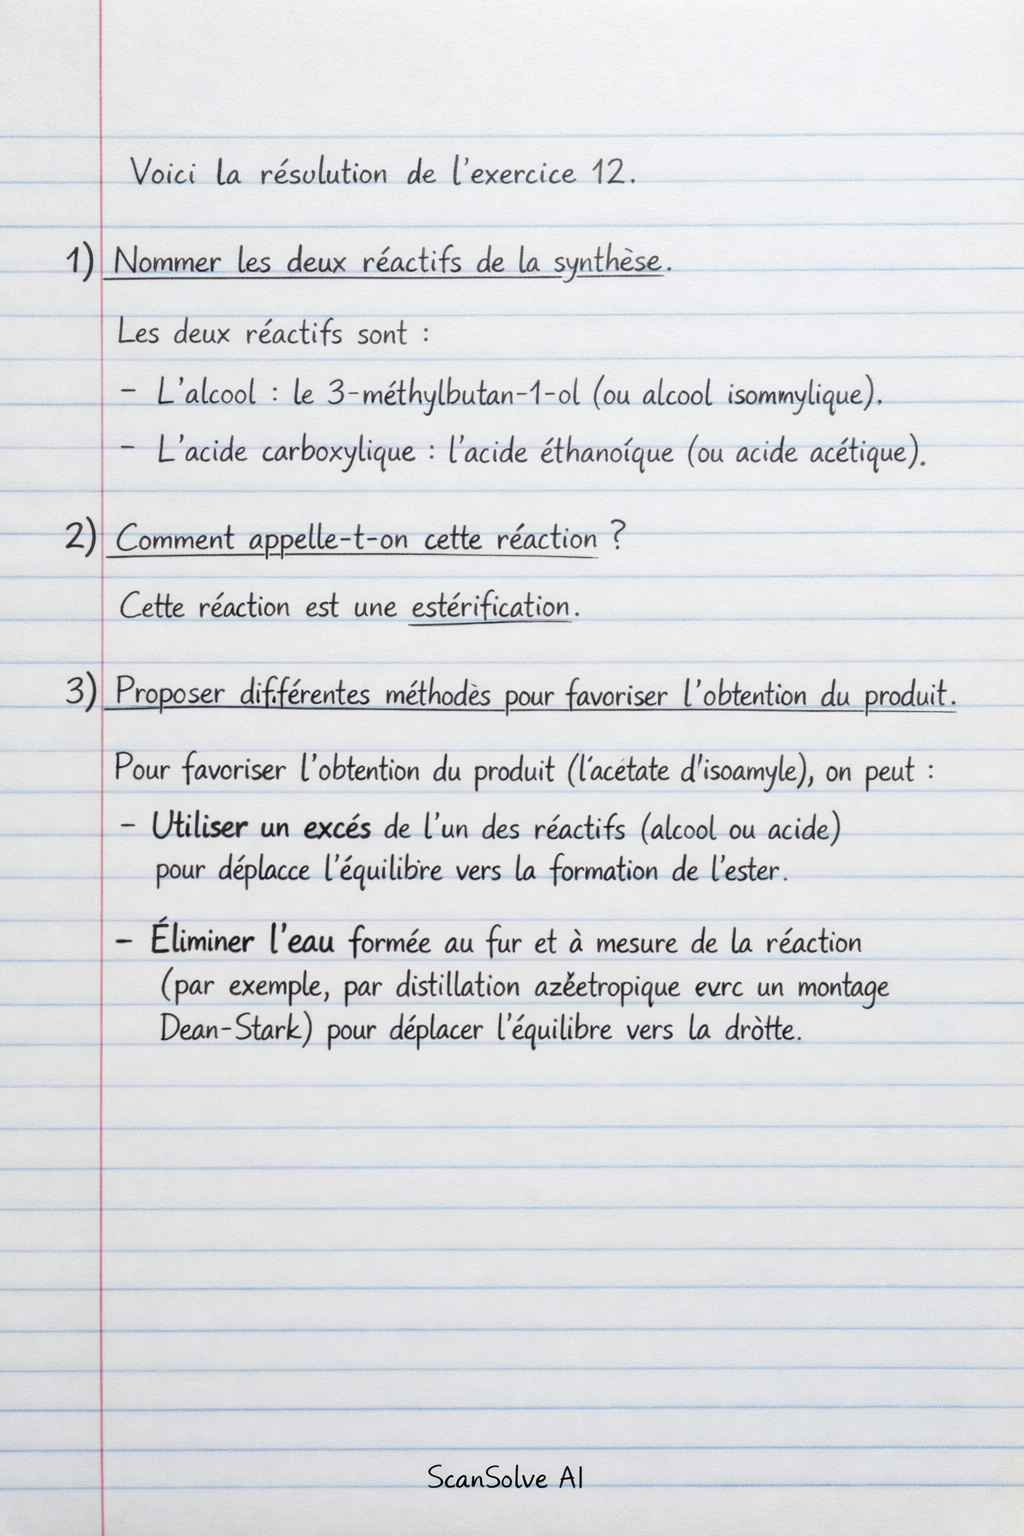 Voici la résolution de l'exercice 12.
1) Nommer les deux réactifs de la synthèse.
Les deux réactifs sont :
- L'alcool : le 3-méthylbutan-1-ol (ou alcool isommylique).
- L'acide carboxylique : l'acide éthanoíque (ou acide acétique).
2) Comment appelle-t-on cette réaction ?
Cette réaction est une estérification.
3) Proposer différentes méthodès pour favoriser l'obtention du produit.
Pour favoriser l'obtention du produit (l'acétate d'isoamyle), on peut :
- Utiliser un excés de l'un des réactifs (alcool ou acide)
pour déplacce l'équilibre vers la formation de l'ester.
- Éliminer l'eau formée au fur et à mesure de la réaction
(par exemple, par distillation azéetropique evrc un montage
Dean-Stark) pour déplacer l'équilibre vers la dròtte.
ScanSolve AI